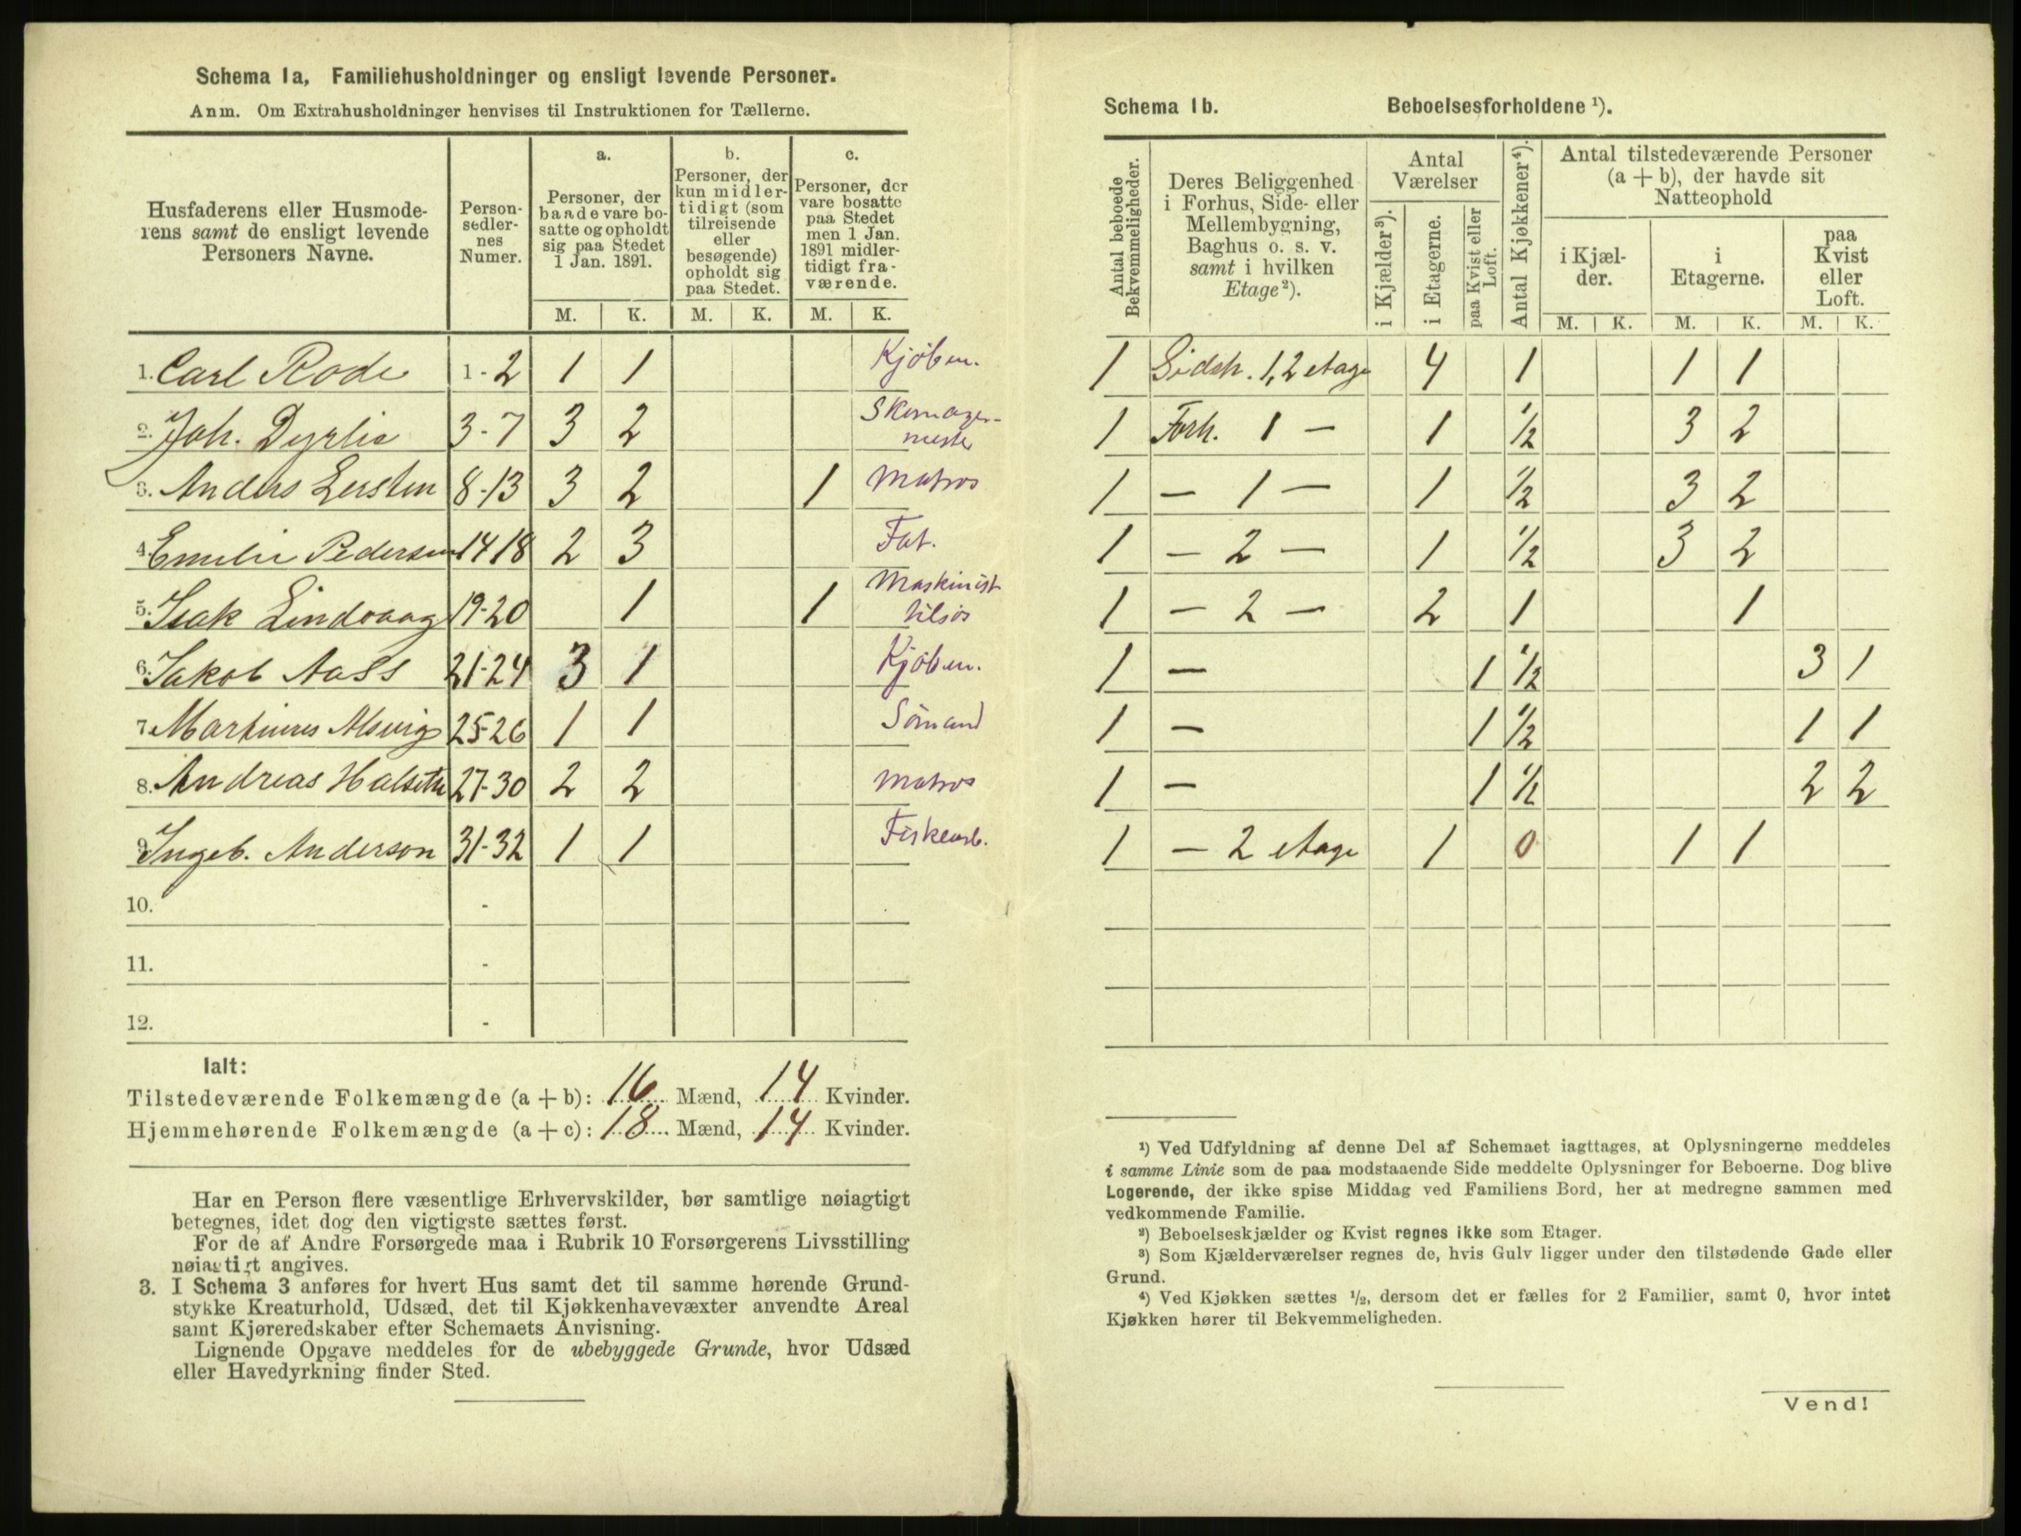 Schema 1a, Familiehusholdninger og ensligt levende Personer.
Anm. Om Extrahusholdninger henvises til Instruktionen for Tællerne.
Husfaderens eller Husmode-
rens samt de ensligt levende
Personers Navne.
Person-
sedler-
nes
Numer.
a.
Personer, der
baade vare bo-
satte og opholdt
sig paa Stedet
1 Jan. 1891.
b.
Personer, der
kun midler-
tidigt (som
tilreisende
eller
besøgende)
opholdt sig
paa Stedet.
c.
Personer, der
vare bosatte
paa Stedet
men 1 Jan.
1891 midler-
tidigt fra-
værende.
M. K. M. K. M. K.
1. Carl Rode 1-2 1 1 Kjöbm.
2. Joh. Dyrlie 3-7 3 2 Skomager-
mester
3. Anders Lersten 8-13 3 2 1 Matros
4. Emilie Pedersen 14 18 2 3 Fat.
5. Isak Lindvaag 19-20 1 1 Maskinist
tilsös
6. Jakob Aass 21-24 3 1 Kjöbm.
7. Martinus Alsvig 25-26 1 1 Sömand
8. Andreas Halseth 27-30 2 2 Matros
9. Ingeb. Anderson 31-32 1 1 Fiskearb.
10. -
11. -
12. -
Ialt:
Tilstedeværende Folkemængde (a + b): 16 Mænd, 14 Kvinder.
Hjemmehørende Folkemængde (a + c): 18 Mænd, 14 Kvinder.
Har en Person flere væsentlige Erhvervskilder, bør samtlige nøiagtigt
betegnes, idet dog den vigtigste sættes først.
For de af Andre Forsørgede maa i Rubrik 10 Forsørgerens Livsstilling
nøiagtigt angives.
3. I Schema 3 anføres for hvert Hus samt det til samme hørende Grund-
stykke Kreaturhold, Udsæd, det til Kjøkkenhavevæxter anvendte Areal
samt Kjøreredskaber efter Schemaets Anvisning.
Lignende Opgave meddeles for de ubebyggede Grunde, hvor Udsæd
eller Havedyrkning finder Sted.
Schema 1b. Beboelsesforholdene ¹).
Antal beboede
Bekvemmeligheder.
Deres Beliggenhed
i Forhus, Side- eller
Mellembygning,
Baghus o. s. v.
samt i hvilken
Etage²).
Antal
Værelser
i Kjælder³).
i Etagerne.
paa Kvist eller
Loft.
Antal Kjøkkener⁴).
Antal tilstedeværende Personer
(a + b), der havde sit
Natteophold
i Kjæl-
der.
i
Etagerne.
paa
Kvist
eller
Loft.
M. K. M. K. M. K.
1 Sidsh. 1, 2 etage 4 1 1 1
1 Forh. 1 — 1 ½ 3 2
1 — 1 — 1 ½ 3 2
1 — 2 — 1 ½ 3 2
1 — 2 — 2 1 1
1 — 1 ½ 3 1
1 — 1 ½ 1 1
1 — 1 ½ 2 2
1 — 2 etage 1 0 1 1
¹) Ved Udfyldning af denne Del af Schemaet iagttages, at Oplysningerne meddeles
i samme Linie som de paa modstaaende Side meddelte Oplysninger for Beboerne. Dog blive
Logerende, der ikke spise Middag ved Familiens Bord, her at medregne sammen med
vedkommende Familie.
²) Beboelseskjælder og Kvist regnes ikke som Etager.
³) Som Kjælderværelser regnes de, hvis Gulv ligger under den tilstødende Gade eller
Grund.
⁴) Ved Kjøkken sættes ½, dersom det er fælles for 2 Familier, samt 0, hvor intet
Kjøkken hører til Bekvemmeligheden.
Vend!